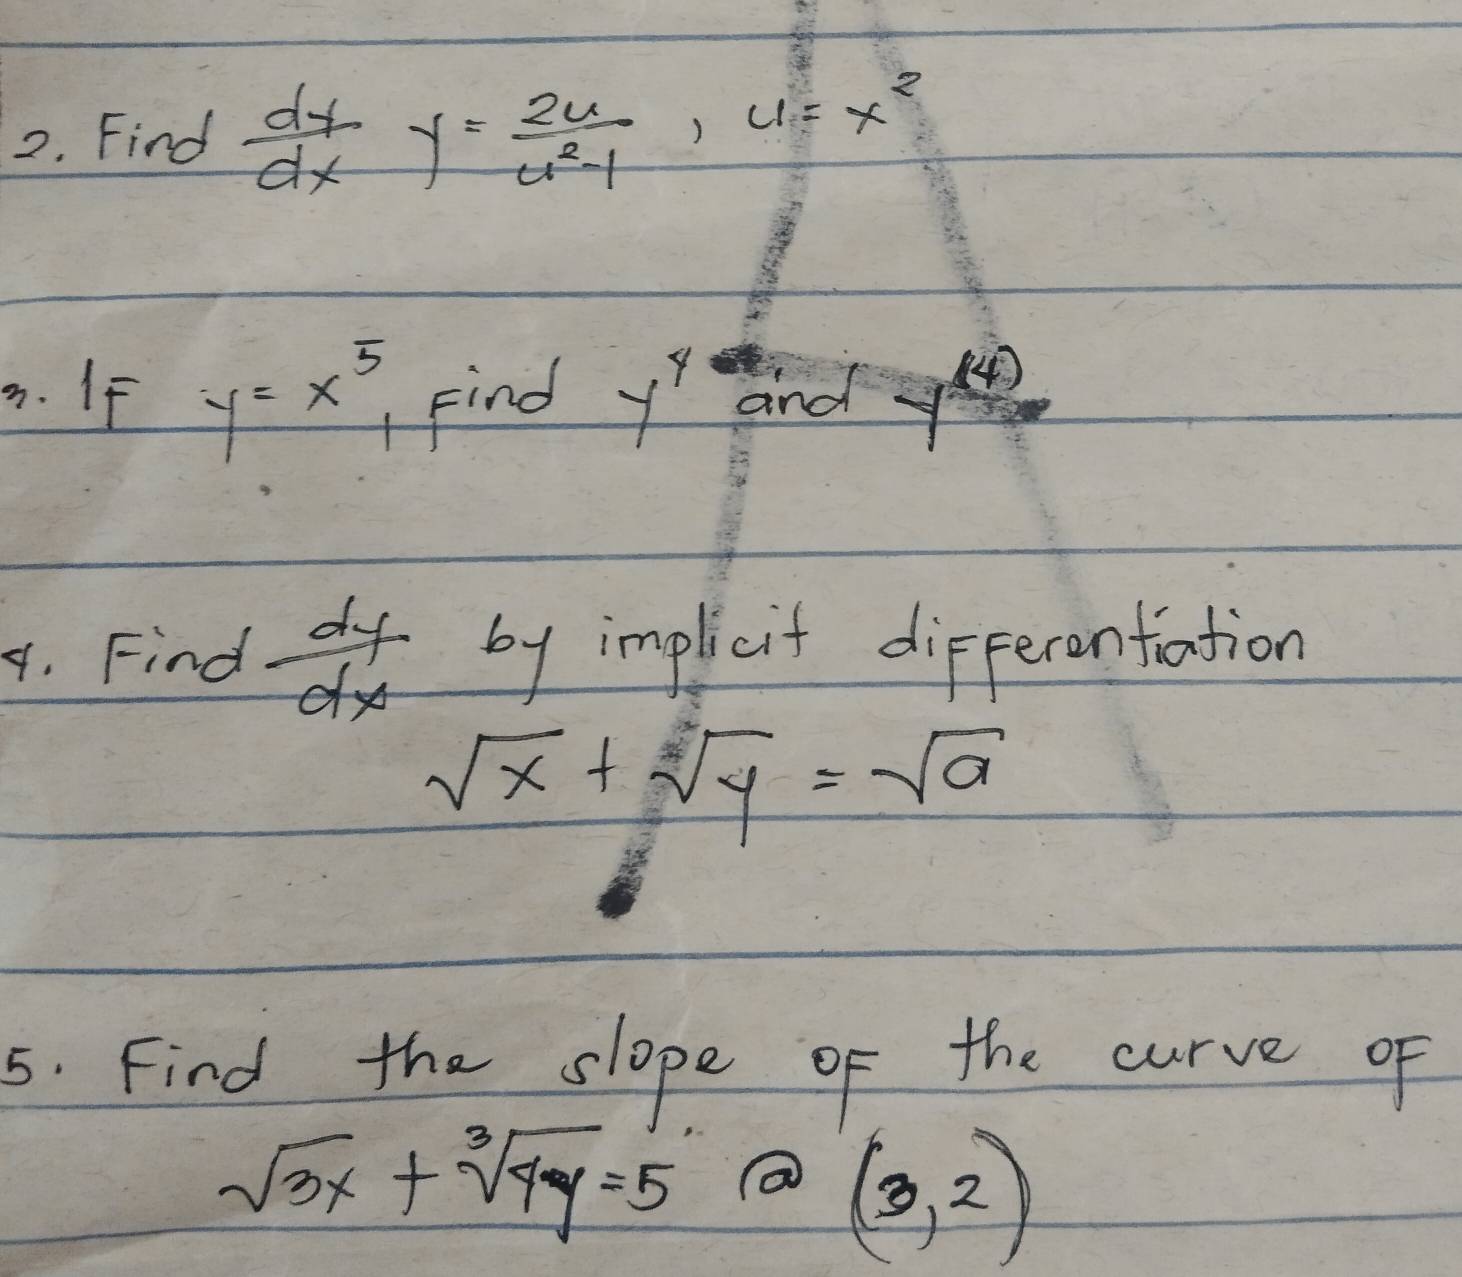 2. Find dy/dx y = 2u/(u²-1), u = x²
3. IF y = x⁵, Find y⁴ and y⁽⁴⁾
4. Find dy/dx by implicit differentiation
√x + √y = √a
5. Find the slope of the curve of
√3x + ∛4y = 5 @ (3,2)